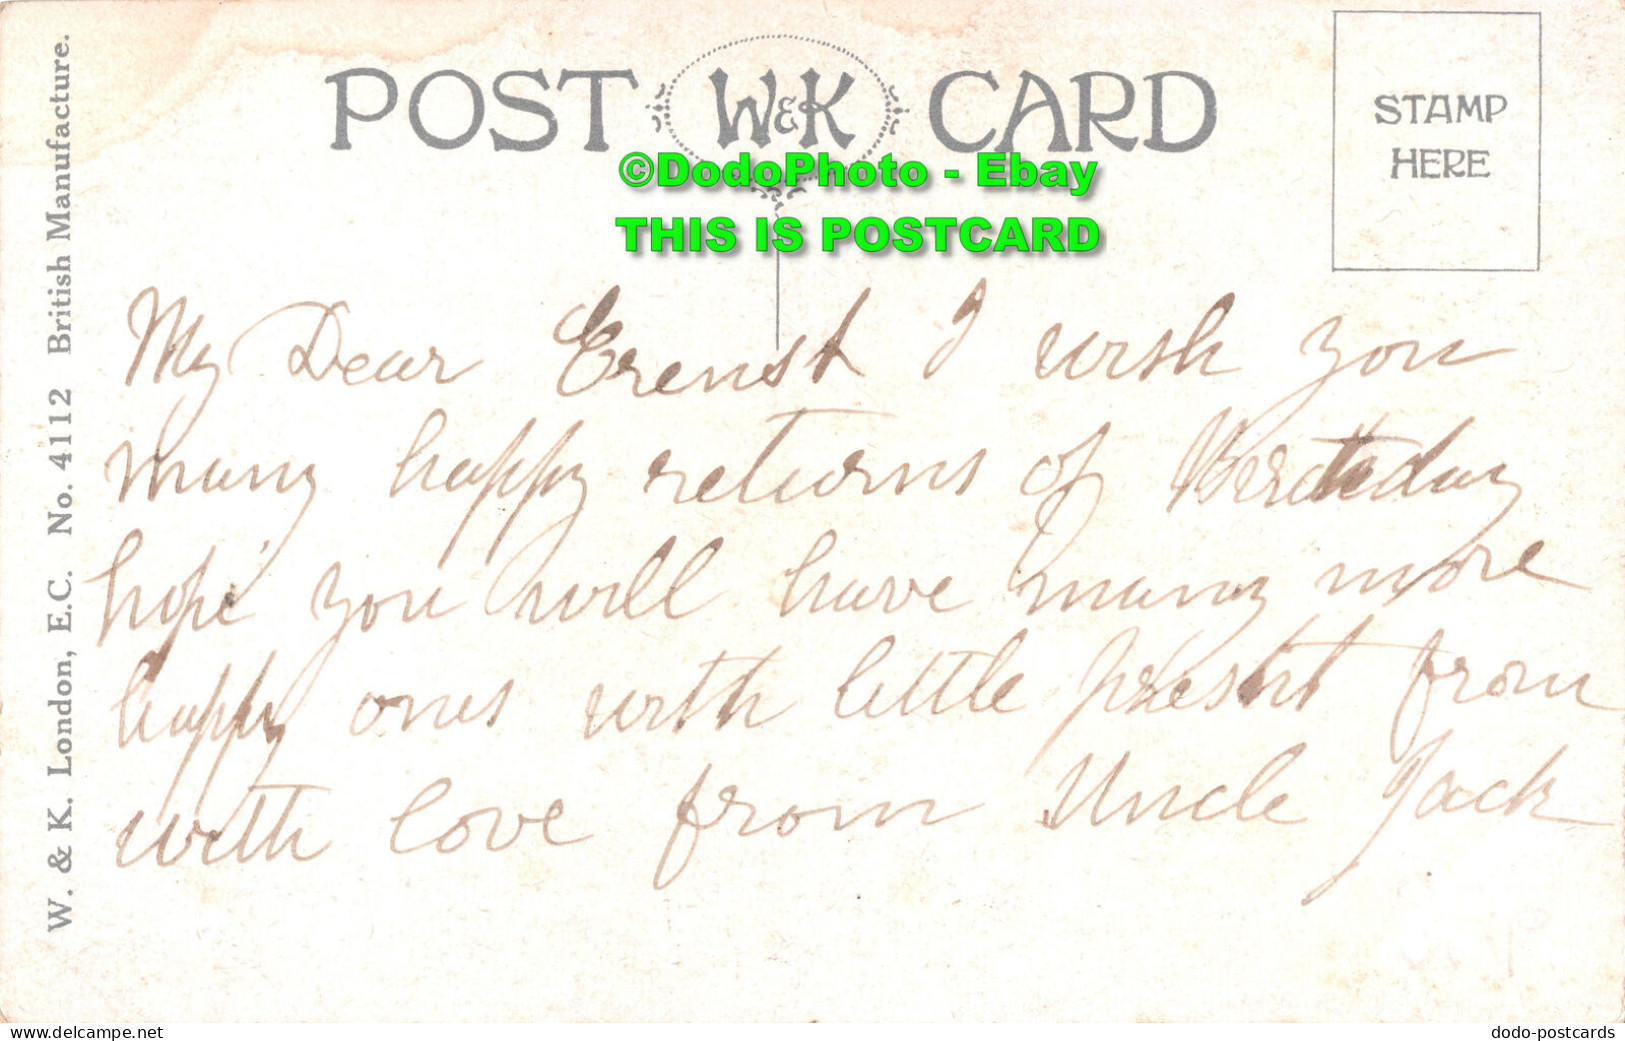 POST W&K CARD
STAMP
HERE
©DodoPhoto - Ebay
THIS IS POSTCARD
W. & K. London, E.C. No. 4112 British Manufacture.
My Dear Erenst I wish you
many happy returns of Birthday
hope you will have many more
happy ones with little present from
with love from Uncle Jack
www.delcampe.net
dodo-postcards